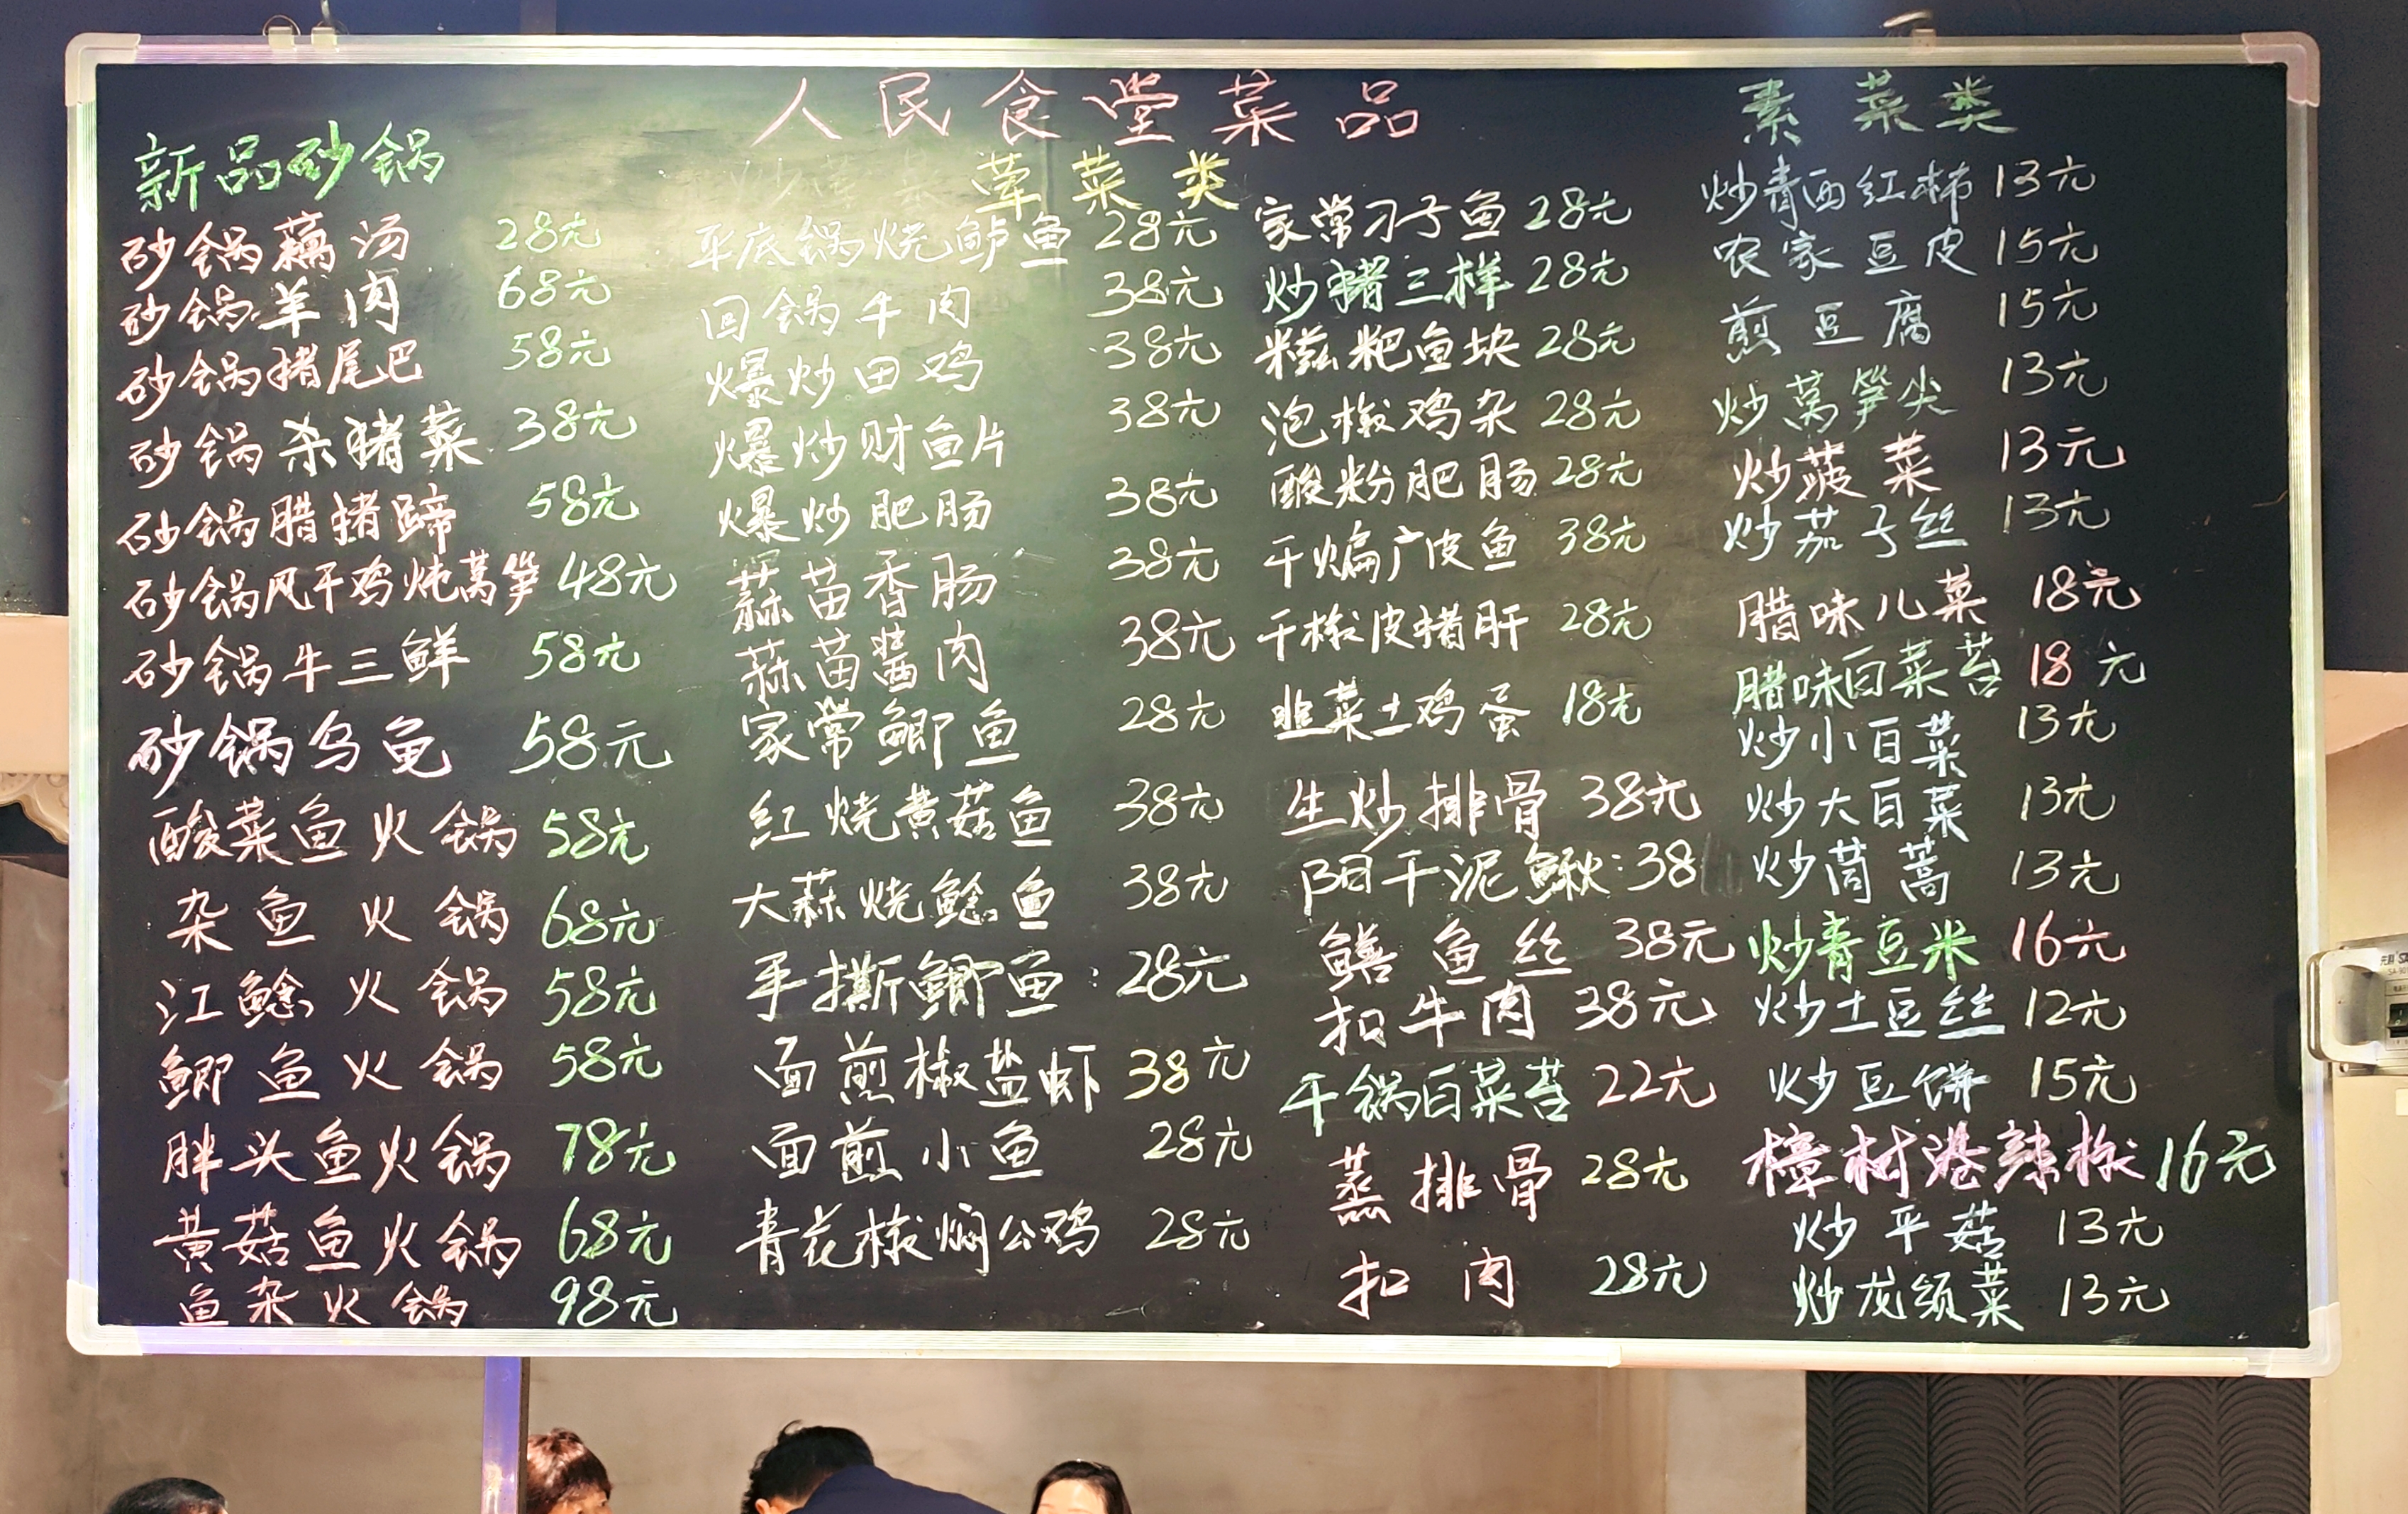 人民食堂菜品
新品砂锅
砂锅藕汤 28元
砂锅羊肉 68元
砂锅猪尾巴 58元
砂锅杀猪菜 38元
砂锅腊猪蹄 58元
砂锅风干鸡炖莴笋 48元
砂锅牛三鲜 58元
砂锅乌龟 58元
酸菜鱼火锅 58元
杂鱼火锅 68元
江鲶火锅 58元
鲫鱼火锅 58元
胖头鱼火锅 78元
黄菇鱼火锅 68元
鱼杂火锅 98元
荤菜类
平底锅烧鲈鱼 28元
回锅牛肉 38元
爆炒田鸡 38元
爆炒财鱼片 38元
爆炒肥肠 38元
蒜苗香肠 38元
蒜苗酱肉 38元
家常鲫鱼 28元
红烧黄菇鱼 38元
大蒜烧鲶鱼 38元
手撕鲫鱼:28元
面煎椒盐虾 38元
面煎小鱼 28元
青花椒焖公鸡 28元
家常刁子鱼 28元
炒猪三样 28元
糍粑鱼块 28元
泡椒鸡杂 28元
酸粉肥肠 28元
干煸广皮鱼 38元
干椒皮猪肝 28元
韭菜土鸡蛋 18元
生炒排骨 38元
阳干泥鳅:38
鳝鱼丝 38元
扣牛肉 38元
干锅白菜苔 22元
蒸排骨 28元
扣肉 28元
素菜类
炒青西红柿 13元
农家豆皮 15元
煎豆腐 15元
炒莴笋尖 13元
炒菠菜 13元
炒茄子丝 13元
腊味儿菜 18元
腊味白菜苔 18元
炒小白菜 13元
炒大白菜 13元
炒茼蒿 13元
炒青豆米 16元
炒土豆丝 12元
炒豆饼 15元
樟树港辣椒 16元
炒平菇 13元
炒龙须菜 13元